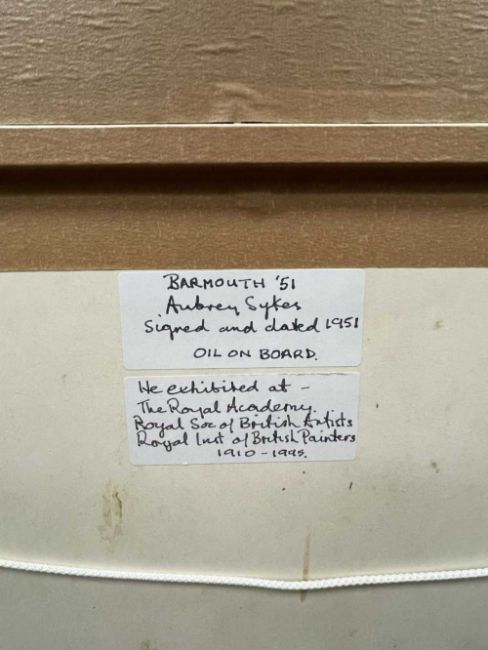 BARMOUTH '51
Aubrey Sykes
Signed and dated 1951
OIL ON BOARD.
He exhibited at -
The Royal Academy.
Royal Soc of British Artists
Royal Inst of British Painters
1910-1995.